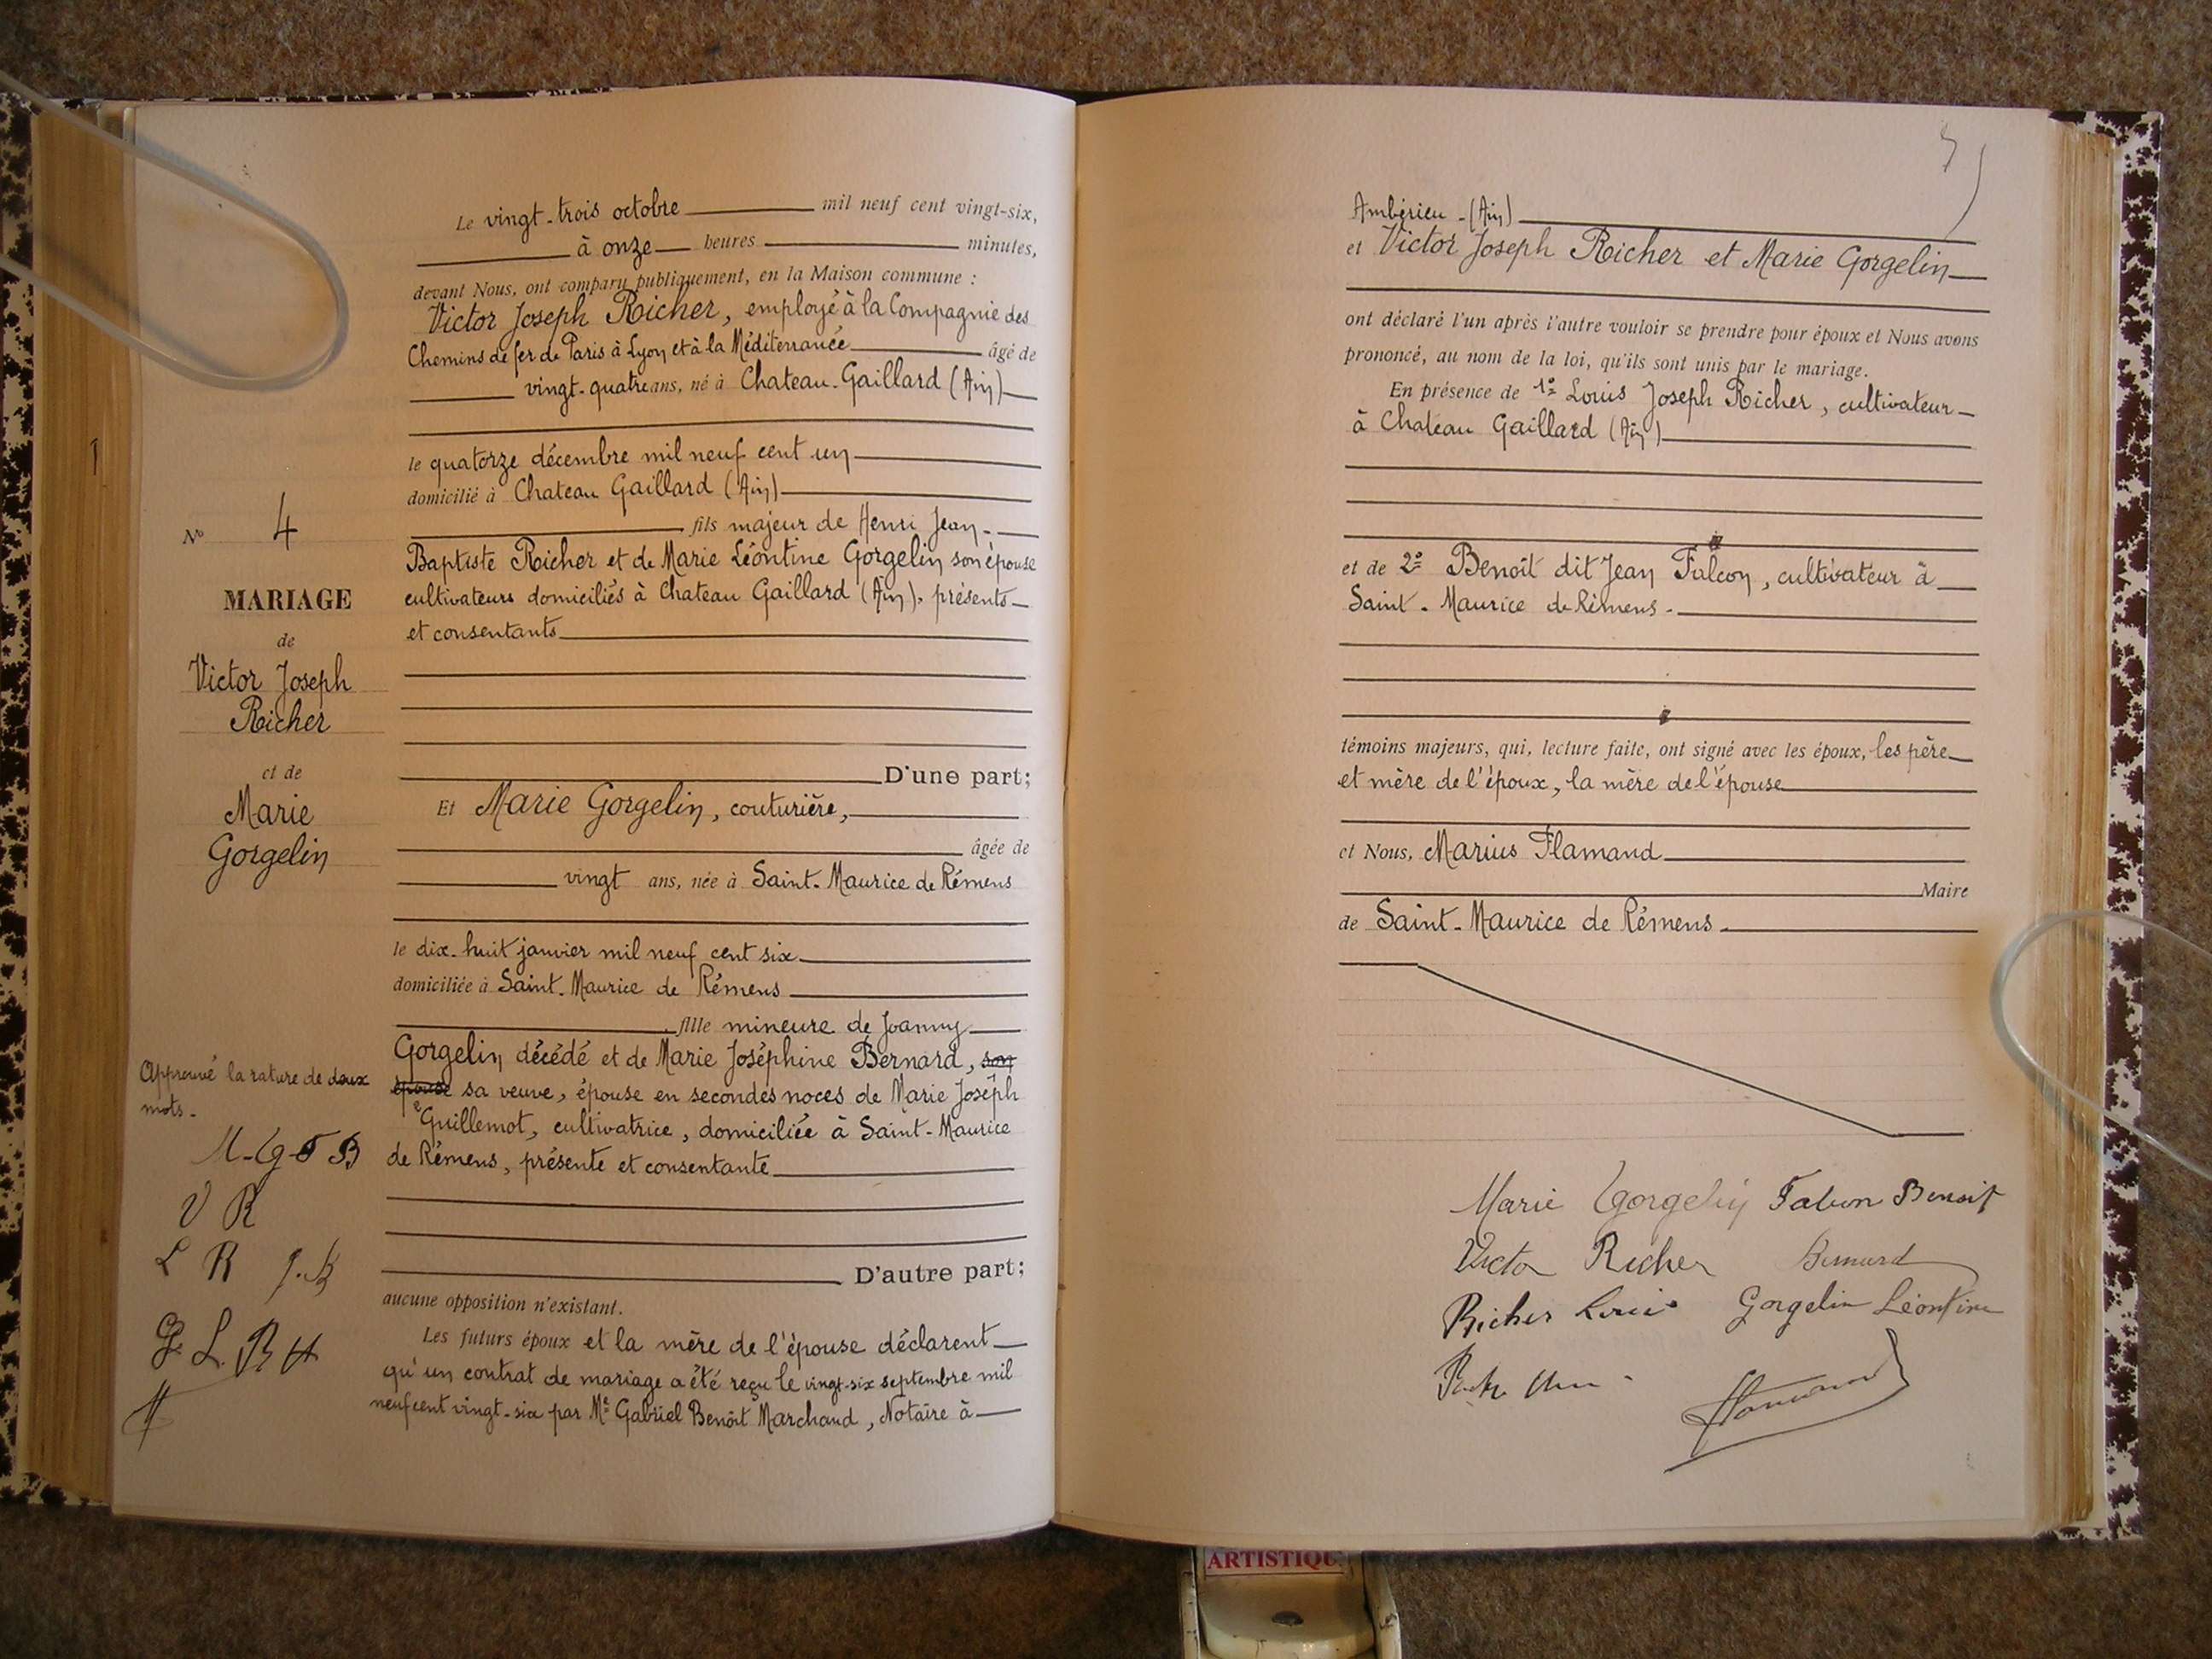 Le vingt-trois octobre mil neuf cent vingt-six,
à onze heures minutes,
devant Nous, ont comparu publiquement, en la Maison commune :
Victor Joseph Richer, employé à la Compagnie des
Chemins de fer de Paris à Lyon et à la Méditerranée âgé de
vingt-quatre ans, né à Chateau-Gaillard (Ain)
le quatorze décembre mil neuf cent un
domicilié à Chateau Gaillard (Ain)
fils majeur de Henri Jean-
Baptiste Richer et de Marie Léontine Gorgelin son épouse
cultivateurs domiciliés à Chateau Gaillard (Ain), présents
et consentants
D'une part;
Et Marie Gorgelin, couturière,
âgée de
vingt ans, née à Saint-Maurice de Rémens
le dix-huit janvier mil neuf cent six
domiciliée à Saint-Maurice de Rémens
fille mineure de Joanny
Gorgelin décédé et de Marie Joséphine Bernard, son
épouse sa veuve, épouse en secondes noces de Marie Joseph
Guillemot, cultivatrice, domiciliée à Saint-Maurice
de Rémens, présente et consentante
D'autre part;
aucune opposition n'existant.
Les futurs époux et la mère de l'épouse déclarent
qu'un contrat de mariage a été reçu le vingt-six septembre mil
neuf cent vingt-six par Me Gabriel Benoît Marchand, Notaire à
No 4
MARIAGE
de
Victor Joseph
Richer
et de
Marie
Gorgelin
Approuvé la rature de deux
mots.
M-G F B
V R
L R J.B
G. L. R H
Ambérieu-(Ain)
et Victor Joseph Richer et Marie Gorgelin
ont déclaré l'un après l'autre vouloir se prendre pour époux et Nous avons
prononcé, au nom de la loi, qu'ils sont unis par le mariage.
En présence de 1º Louis Joseph Richer, cultivateur
à Chateau Gaillard (Ain)
et de 2º Benoît dit Jean Falcon, cultivateur à
Saint-Maurice de Rémens-
témoins majeurs, qui, lecture faite, ont signé avec les époux, les père
et mère de l'époux, la mère de l'épouse
et Nous, Marius Flamand
Maire
de Saint-Maurice de Rémens
Marie Gorgelin Falcon Benoit
Victor Richer Bernard
Richer Louis Gorgelin Léontine
Flamand
ARTISTIQU